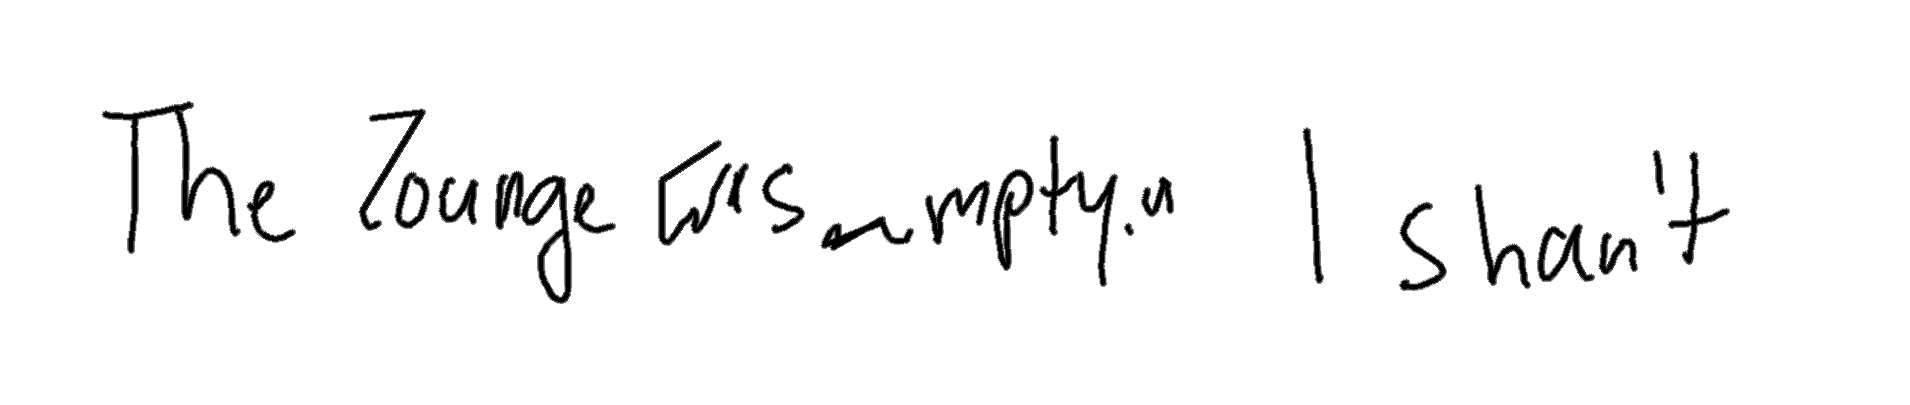 The Lounge was empty." I shan't